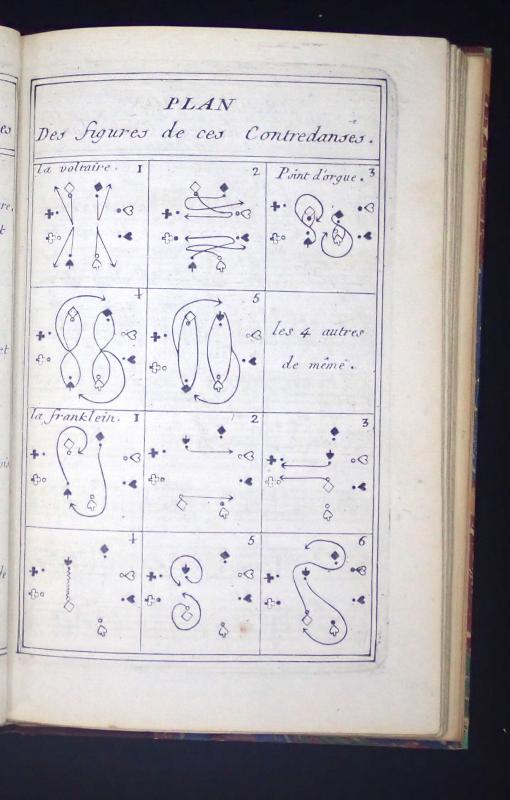 PLAN
Des figures de ces Contredanses.
la voltaire. 1
2
Point d'orgue. 3
4
5
les 4 autres
de même.
la franklein. 1
2
3
4
5
6